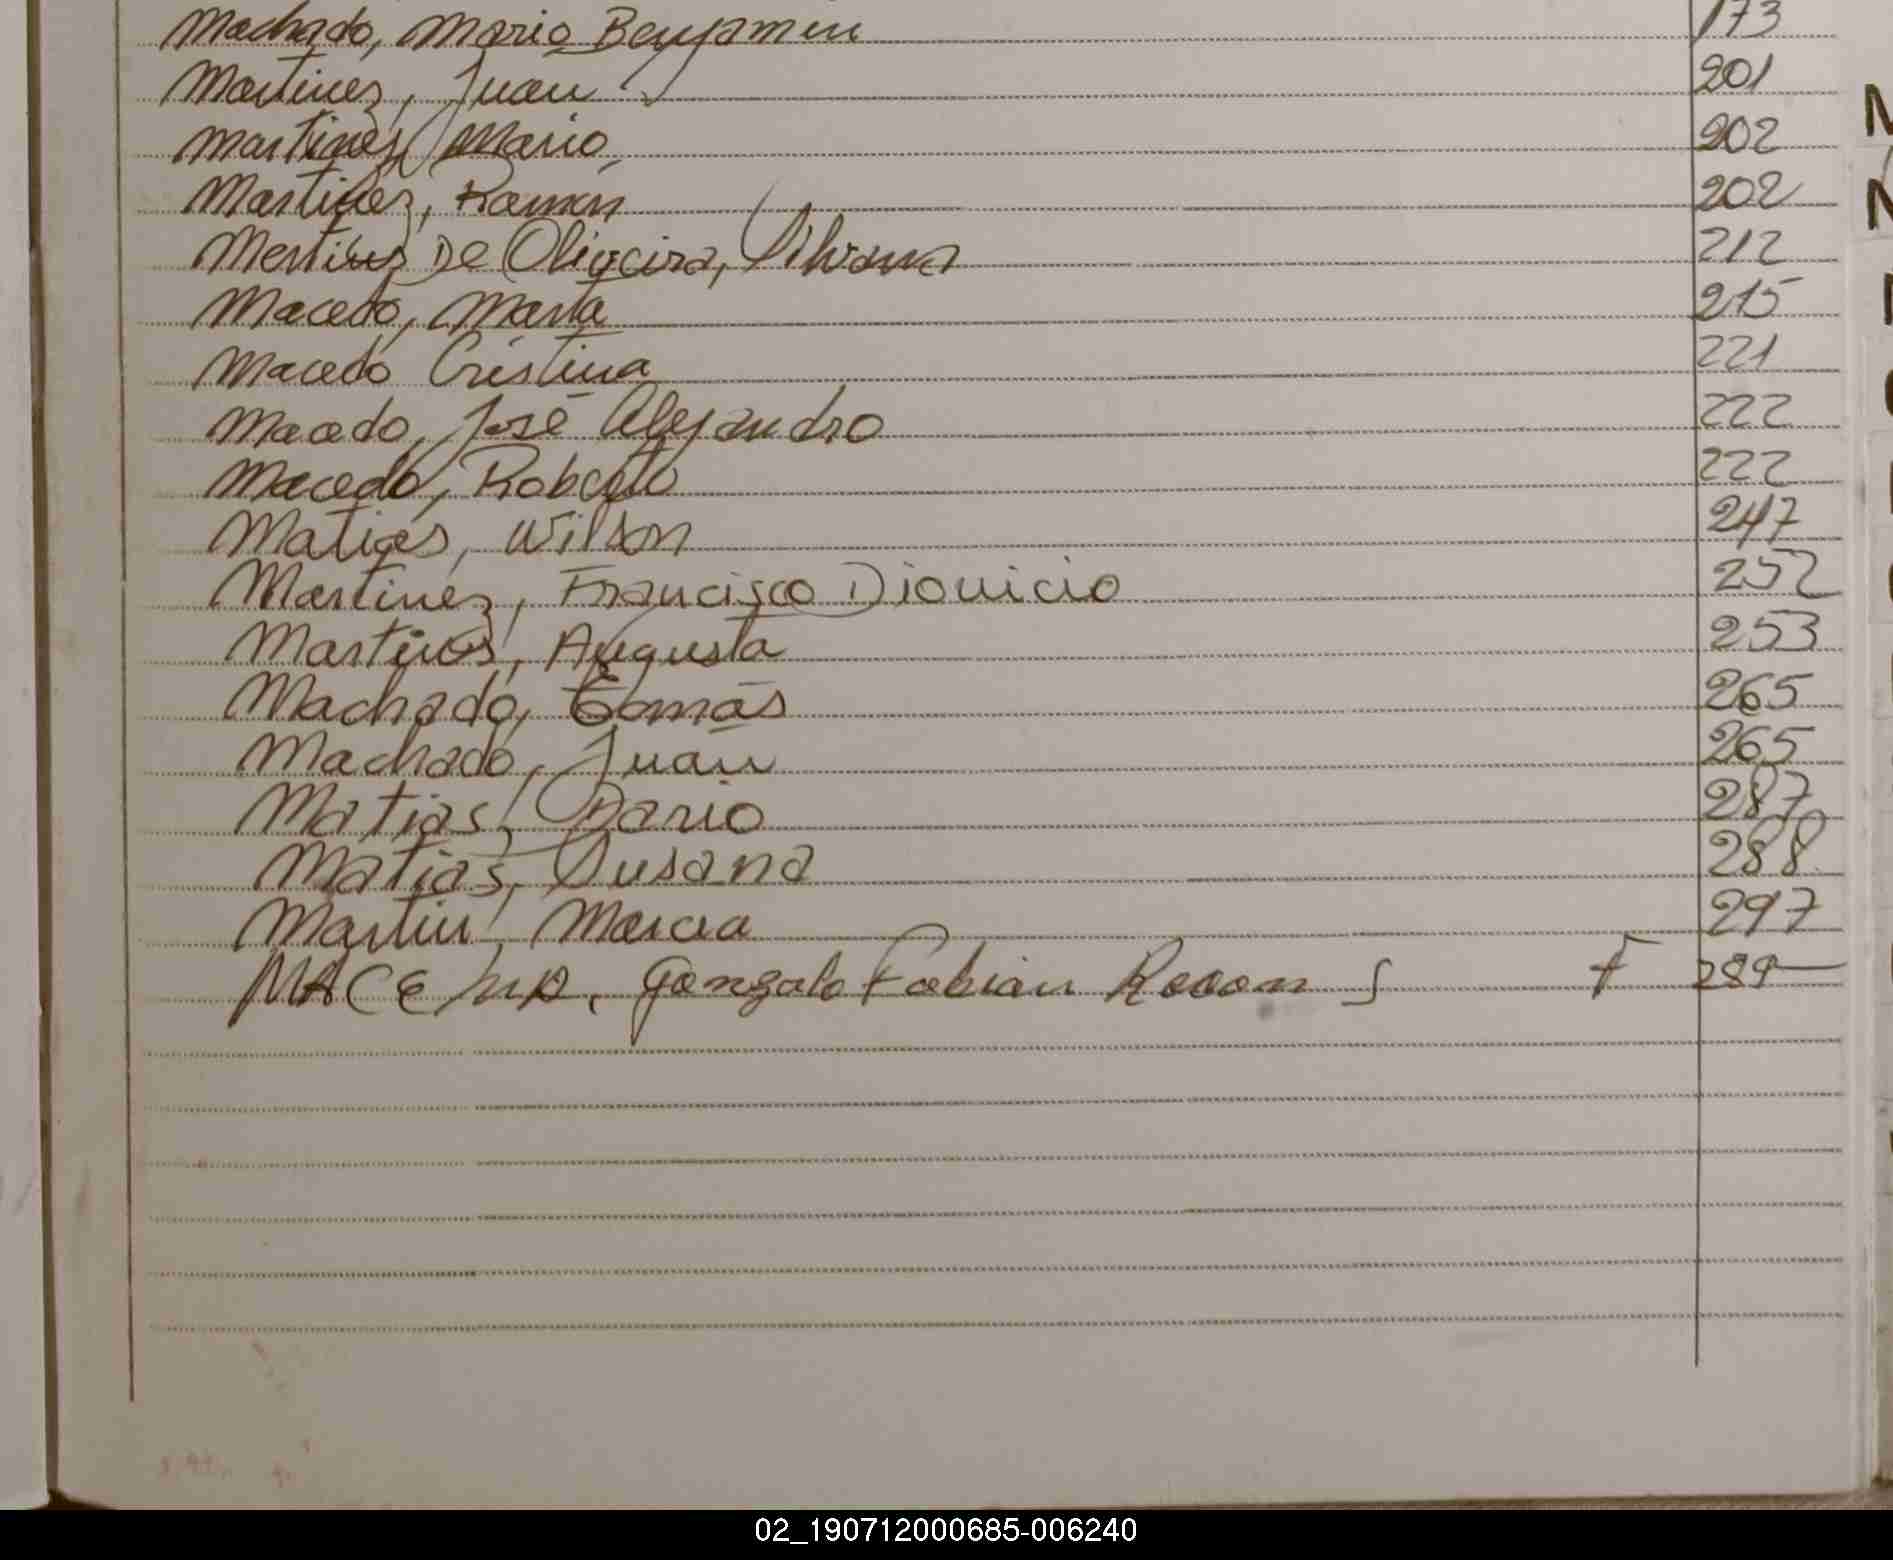 Machado, Mario Benjamin 173
Martinez, Juan 201
Martinez, Mario 202
Martinez, Ramón 202
Martinez De Oliveira, Silvana 212
Macedo, Marta 215
Macedo Cristina 221
Macedo, José Alejandro 222
Macedo, Roberto 222
Matias, Wilson 247
Martinez, Francisco Dionicio 252
Martinez, Augusta 253
Machado, Tomás 265
Machado, Juan 265
Matias, Dario 287
Matias, Susana 288
Martin, Marcia 297
Gonzalo Fabian Ramon F 289
02_190712000685-006240